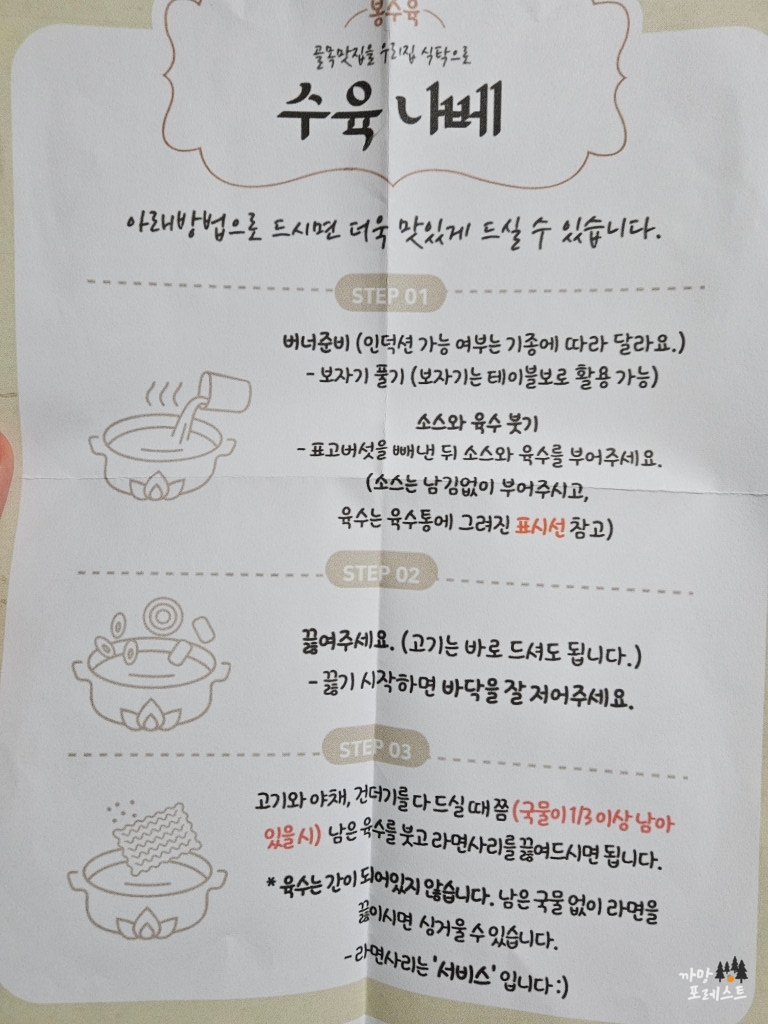 봉수육
골목맛집을 우리집 식탁으로
수육 나베
아래방법으로 드시면 더욱 맛있게 드실 수 있습니다.
STEP 01
버너준비 (인덕션 가능 여부는 기종에 따라 달라요.)
- 보자기 풀기 (보자기는 테이블보로 활용 가능)
소스와 육수 붓기
- 표고버섯을 빼낸 뒤 소스와 육수를 부어주세요.
(소스는 남김없이 부어주시고,
육수는 육수통에 그려진 표시선 참고)
STEP 02
끓여주세요. (고기는 바로 드셔도 됩니다.)
- 끓기 시작하면 바닥을 잘 저어주세요.
STEP 03
고기와 야채, 건더기를 다 드실 때 쯤 (국물이 1/3 이상 남아
있을 시) 남은 육수를 붓고 라면사리를 끓여드시면 됩니다.
* 육수는 간이 되어있지 않습니다. 남은 국물 없이 라면을
끓이시면 싱거울 수 있습니다.
- 라면사리는 '서비스' 입니다 :)
까망
포레스트